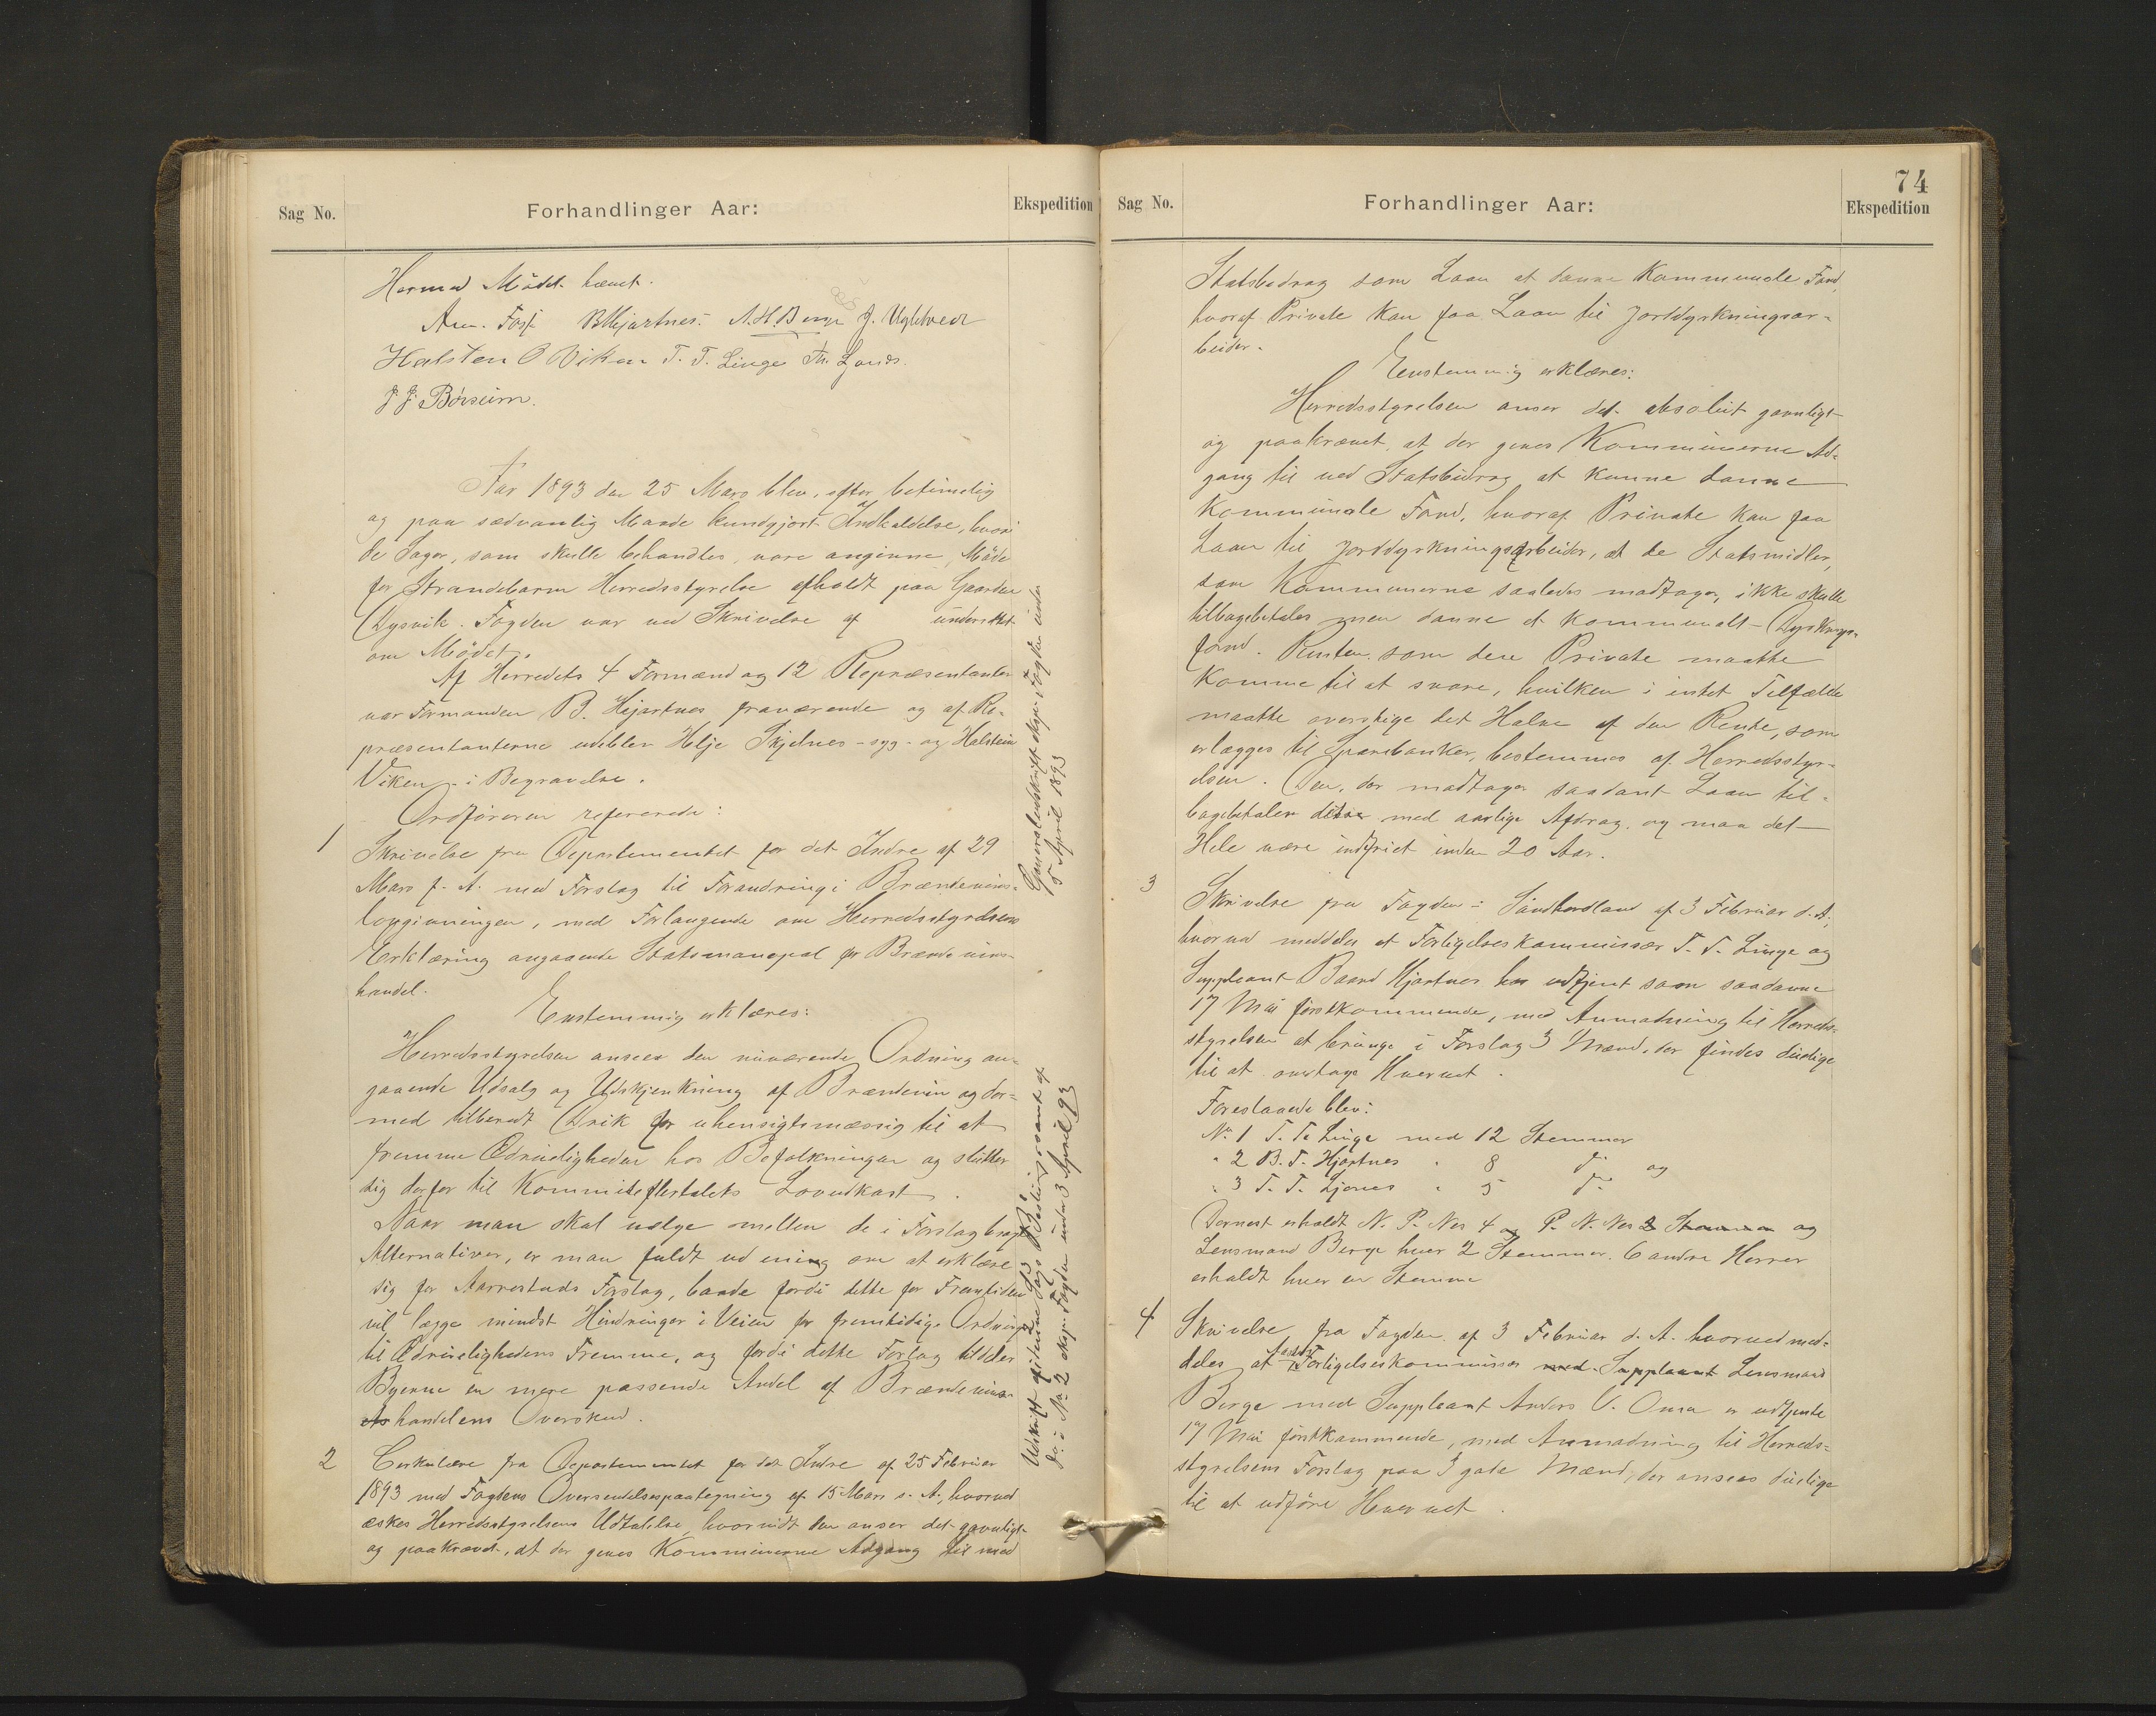 Sag No.
Forhandlinger Aar:
Ekspedition
Hermed Mödet hævet.
B Hjartnes. A. H. Berge J. Ugletveit
Halsten O Viken T. T. Linge
J J. Børseim.
Aar 1893 den 25 Mars blev, efter betimelig
og paa sædvanlig Maade kundgjort Indkaldelse, hvori
de Sager, som skulle behandles, vare angivne, Möde
for Strandebarm Herredsstyrelse afholdt paa Gaarden
Dysvik. Fogden var ved Skrivelse af underrettet
om Mödet.
Af Herredets 4 Formænd og 12 Repræsentanter
var Formanden B. Hjartnes fraværende og af Re-
præsentanterne udeblev Helje Skjelnes - syg - og Halstein
Viken - i Begravelse.
Ordföreren refererede:
1
Skrivelse fra Departementet for det Indre af 29
Mars f. A. med Forslag til Forandring i Brændevins-
lovgivningen, med Forlangende om Herredsstyrelsens
Erklæring angaaende Statsmonopol for Brændevins-
handel.
Enstemmig erklæres:
Herredsstyrelsen ansees den nuværende Ordning an-
gaaende Udsalg og Udskjenkning af Brændevin og der-
med tilberedt Drik for uhensigtsmæssig til at
fremme Ædrueligheden hos Befolkningen og slutter
sig derfor til Kommiteflertalets Lovudkast.
Naar man skal vælge mellem de i Forslag bragte
Alternativer, er man fuldt ud enig om at erklære
sig for Aarrestads Forslag, baade fordi dette for Fremtiden
vil lægge mindst Hindringer i Veien for fremtidige Ordninger
til Ædruelighedens Fremme, og fordi dette Forslag tildeler
Byerne en mere passende Andel af Brændevins-
handelens Overskud.
2
Cirkulære fra Departementet for det Indre af 25 Februar
1893 med Fogdens Oversendelsespaategning af 15 Mars s. A., hvorved
æskes Herredsstyrelsens Udtalelse, hvorvidt den anser det gavnligt
og paakrævet, at der gives Kommunerne Adgang til med
Genpartudskrift eksp. Fogden under
5 April 1893
Udskrift af denne Sags Beslutning samt af
do. i No. 2 eksp. Fogden under 3 April 93
74
Sag No.
Forhandlinger Aar:
Ekspedition
Statsbidrag som Laan at danne Kommunale Fond,
hvoraf Private kan faa Laan til Jorddyrkningsar-
beider.
Enstemmig erklæres:
Herredsstyrelsen anser det absolut gavnligt
og paakrævet, at der gives Kommunerne Ad-
gang til ved Statsbidrag at kunne danne
Kommunale Fond, hvoraf Private kan faa
Laan til Jorddyrkningsarbeider, at de Statsmidler,
som Kommunerne saaledes modtager, ikke skulle
tilbagebetales men danne et kommunalt Dyrknings-
fond. Renten som den Private maatte
komme til at svare, hvilken i intet Tilfælde
maatte overstige det Halve af den Rente, som
erlægges til Sparebanker, bestemmes af Herredsstyr-
elsen. Den, der modtager saadant Laan til-
bagebetaler dette med aarlige Afdrag, og maa det
Hele være indfriet inden 20 Aar.
3
Skrivelse fra Fogden i Söndhordland af 3 Februar d. A.,
hvorved meddeles at Forligelseskommissær T. T. Linge og
Suppleant Baard Hjartnes har udtjent som saadanne
17 Mai förstkommende, med Anmodning til Herreds-
styrelsen at bringe i Forslag 3 Mænd, der findes duelige
til at overtage Hvervet.
Foreslaaede blev:
No. 1 T. T. Linge med 12 Stemmer
" 2 B. T. Hjartnes " 8 do. og
" 3 T. T. Ljones " 5 do.
Dernest erholdt N. P. Nes 4 og P. N. Nes 3 Stemmer og
Lensmand Berge hver 2 Stemmer. 6 andre Herrer
erholdt hver en Stemme
4
Skrivelse fra Fogden af 3 Februar d. A. hvorved med-
deles at Forligelseskommissær med Suppleant Lensmand
Berge med Suppleant Anders V. Oma er udtjente
17 Mai förstkommende, med Anmodning til Herreds-
styrelsens Forslag paa 3 gode Mænd, der ansees duelige
til at udföre Hvervet.